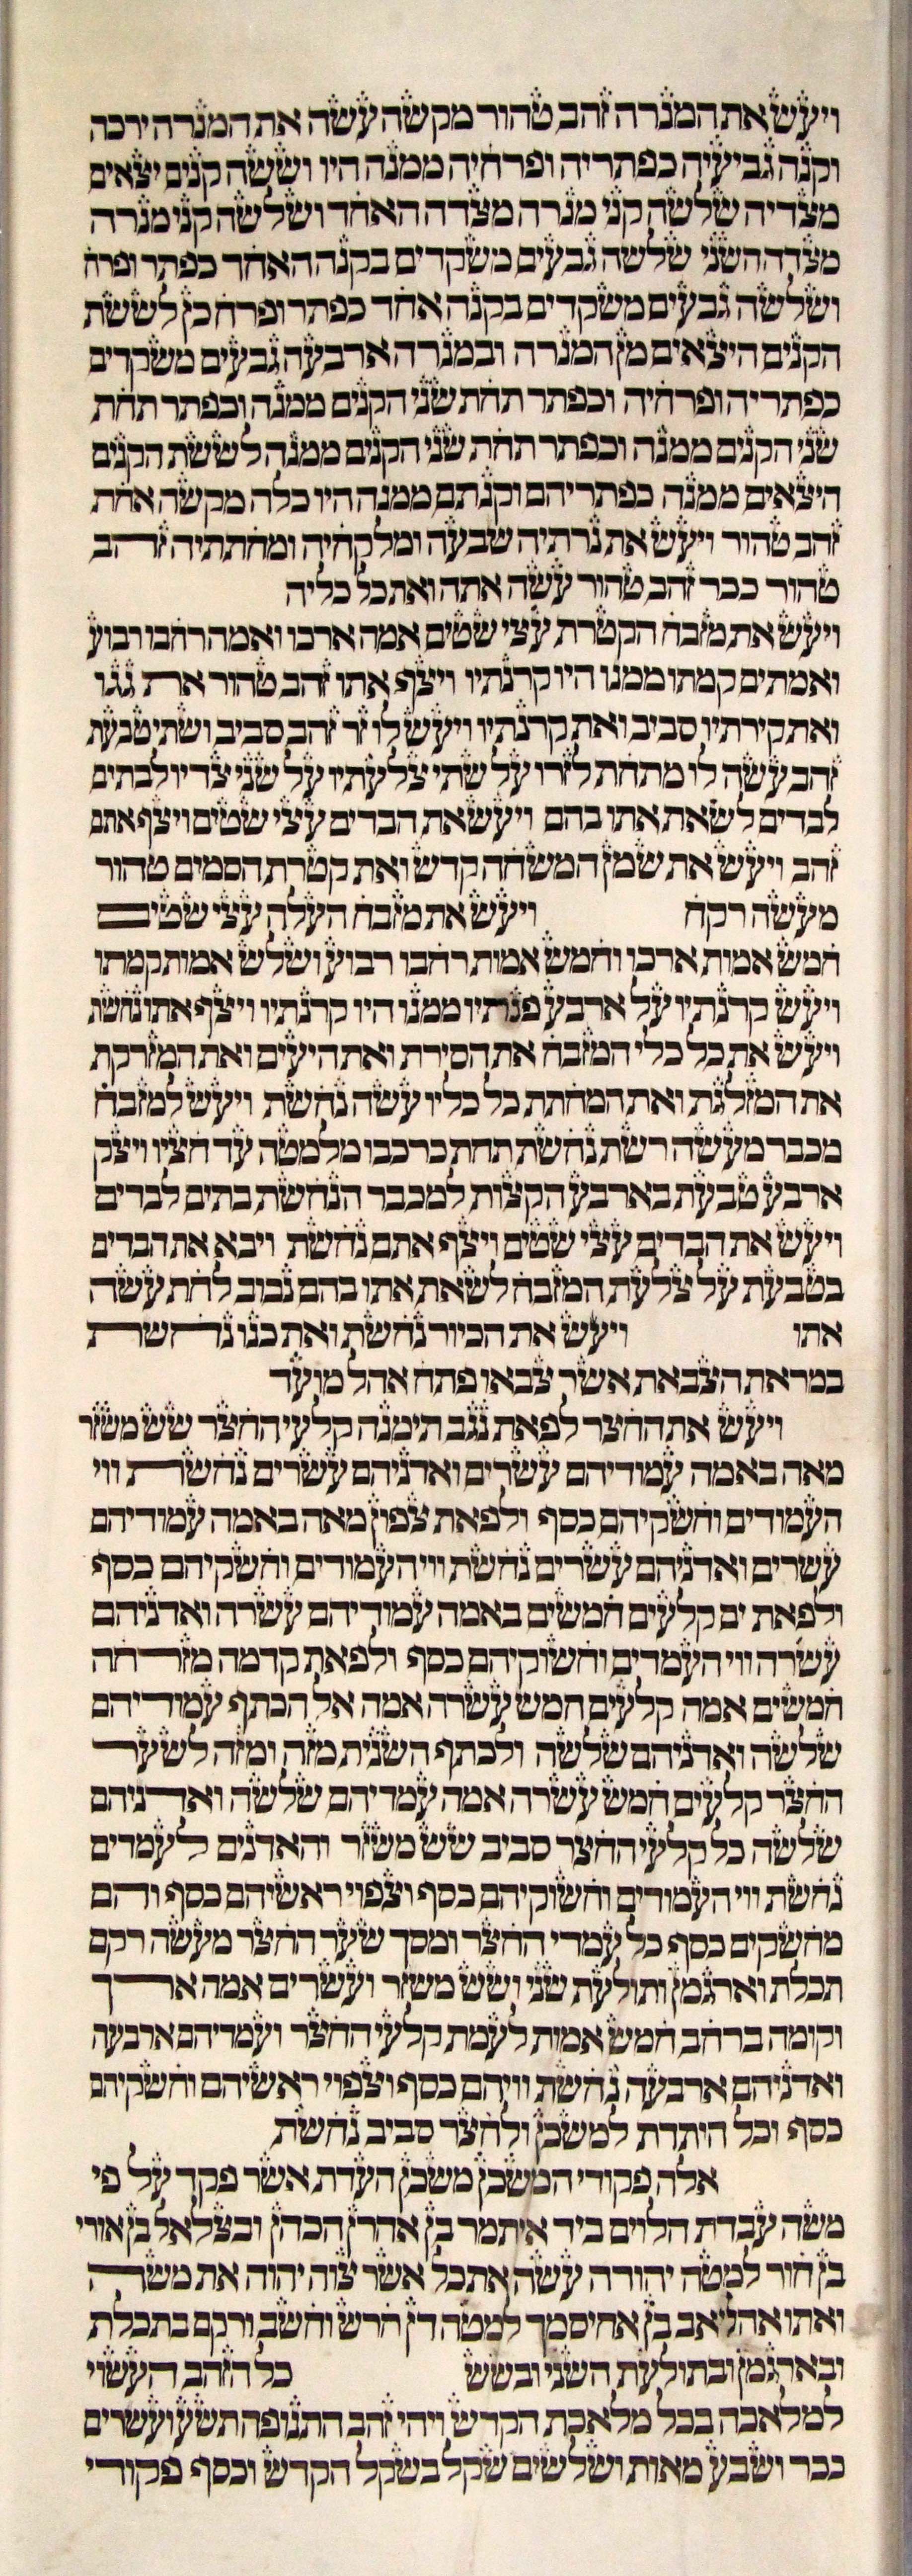 ויעש את המנרה זהב טהור מקשה עשה את המנרה ירכה
וקנה גביעיה כפתריה ופרחיה ממנה היו וששה קנים יצאים
מצדיה שלשה קני מנרה מצדה האחד ושלשה קני מנרה
מצדה השני שלשה גבעים משקדים בקנה האחד כפתר ופרח
ושלשה גבעים משקדים בקנה אחד כפתר ופרח כן לששת
הקנים היצאים מן המנרה ובמנרה ארבעה גבעים משקדים
כפתריה ופרחיה וכפתר תחת שני הקנים ממנה וכפתר תחת
שני הקנים ממנה וכפתר תחת שני הקנים ממנה לששת הקנים
היצאים ממנה כפתריהם וקנתם ממנה היו כלה מקשה אחת
זהב טהור ויעש את נרתיה שבעה ומלקחיה ומחתתיה זהב
טהור ככר זהב טהור עשה אתה ואת כל כליה
ויעש את מזבח הקטרת עצי שטים אמה ארכו ואמה רחבו רבוע
ואמתים קמתו ממנו היו קרנתיו ויצף אתו זהב טהור את גגו
ואת קירתיו סביב ואת קרנתיו ויעש לו זר זהב סביב ושתי טבעת
זהב עשה לו מתחת לזרו על שתי צלעתיו על שני צדיו לבתים
לבדים לשאת אתו בהם ויעש את הבדים עצי שטים ויצף אתם
זהב ויעש את שמן המשחה קדש ואת קטרת הסמים טהור
מעשה רקח ויעש את מזבח העלה עצי שטים
חמש אמות ארכו וחמש אמות רחבו רבוע ושלש אמות קמתו
ויעש קרנתיו על ארבע פנתיו ממנו היו קרנתיו ויצף אתו נחשת
ויעש את כל כלי המזבח את הסירת ואת היעים ואת המזרקת
את המזלגת ואת המחתת כל כליו עשה נחשת ויעש למזבח
מכבר מעשה רשת נחשת תחת כרכבו מלמטה עד חציו ויצק
ארבע טבעת בארבע הקצות למכבר הנחשת בתים לבדים
ויעש את הבדים עצי שטים ויצף אתם נחשת ויבא את הבדים
בטבעת על צלעת המזבח לשאת אתו בהם נבוב לחת עשה
אתו ויעש את הכיור נחשת ואת כנו נחשת
במראת הצבאת אשר צבאו פתח אהל מועד
ויעש את החצר לפאת נגב תימנה קלעי החצר שש משזר
מאה באמה עמודיהם עשרים ואדניהם עשרים נחשת ווי
העמודים וחשקיהם כסף ולפאת צפון מאה באמה עמודיהם
עשרים ואדניהם עשרים נחשת ווי העמודים וחשקיהם כסף
ולפאת ים קלעים חמשים באמה עמודיהם עשרה ואדניהם
עשרה ווי העמדים וחשוקיהם כסף ולפאת קדמה מזרחה
חמשים אמה קלעים חמש עשרה אמה אל הכתף עמודיהם
שלשה ואדניהם שלשה ולכתף השנית מזה ומזה לשער
החצר קלעים חמש עשרה אמה עמדיהם שלשה ואדניהם
שלשה כל קלעי החצר סביב שש משזר והאדנים לעמדים
נחשת ווי העמודים וחשוקיהם כסף וצפוי ראשיהם כסף והם
מחשקים כסף כל עמדי החצר ומסך שער החצר מעשה רקם
תכלת וארגמן ותולעת שני ושש משזר ועשרים אמה ארך
וקומה ברחב חמש אמות לעמת קלעי החצר ועמדיהם ארבעה
ואדניהם ארבעה נחשת וויהם כסף וצפוי ראשיהם וחשקיהם
כסף וכל היתדת למשכן ולחצר סביב נחשת
אלה פקודי המשכן משכן העדת אשר פקד על פי
משה עבדת הלוים ביד איתמר בן אהרן הכהן ובצלאל בן אורי
בן חור למטה יהודה עשה את כל אשר צוה יהוה את משה
ואתו אהליאב בן אחיסמך למטה דן חרש וחשב ורקם בתכלת
ובארגמן ובתולעת השני ובשש כל הזהב העשוי
למלאכה בכל מלאכת הקדש ויהי זהב התנופה תשע ועשרים
ככר ושבע מאות ושלשים שקל בשקל הקדש וכסף פקודי